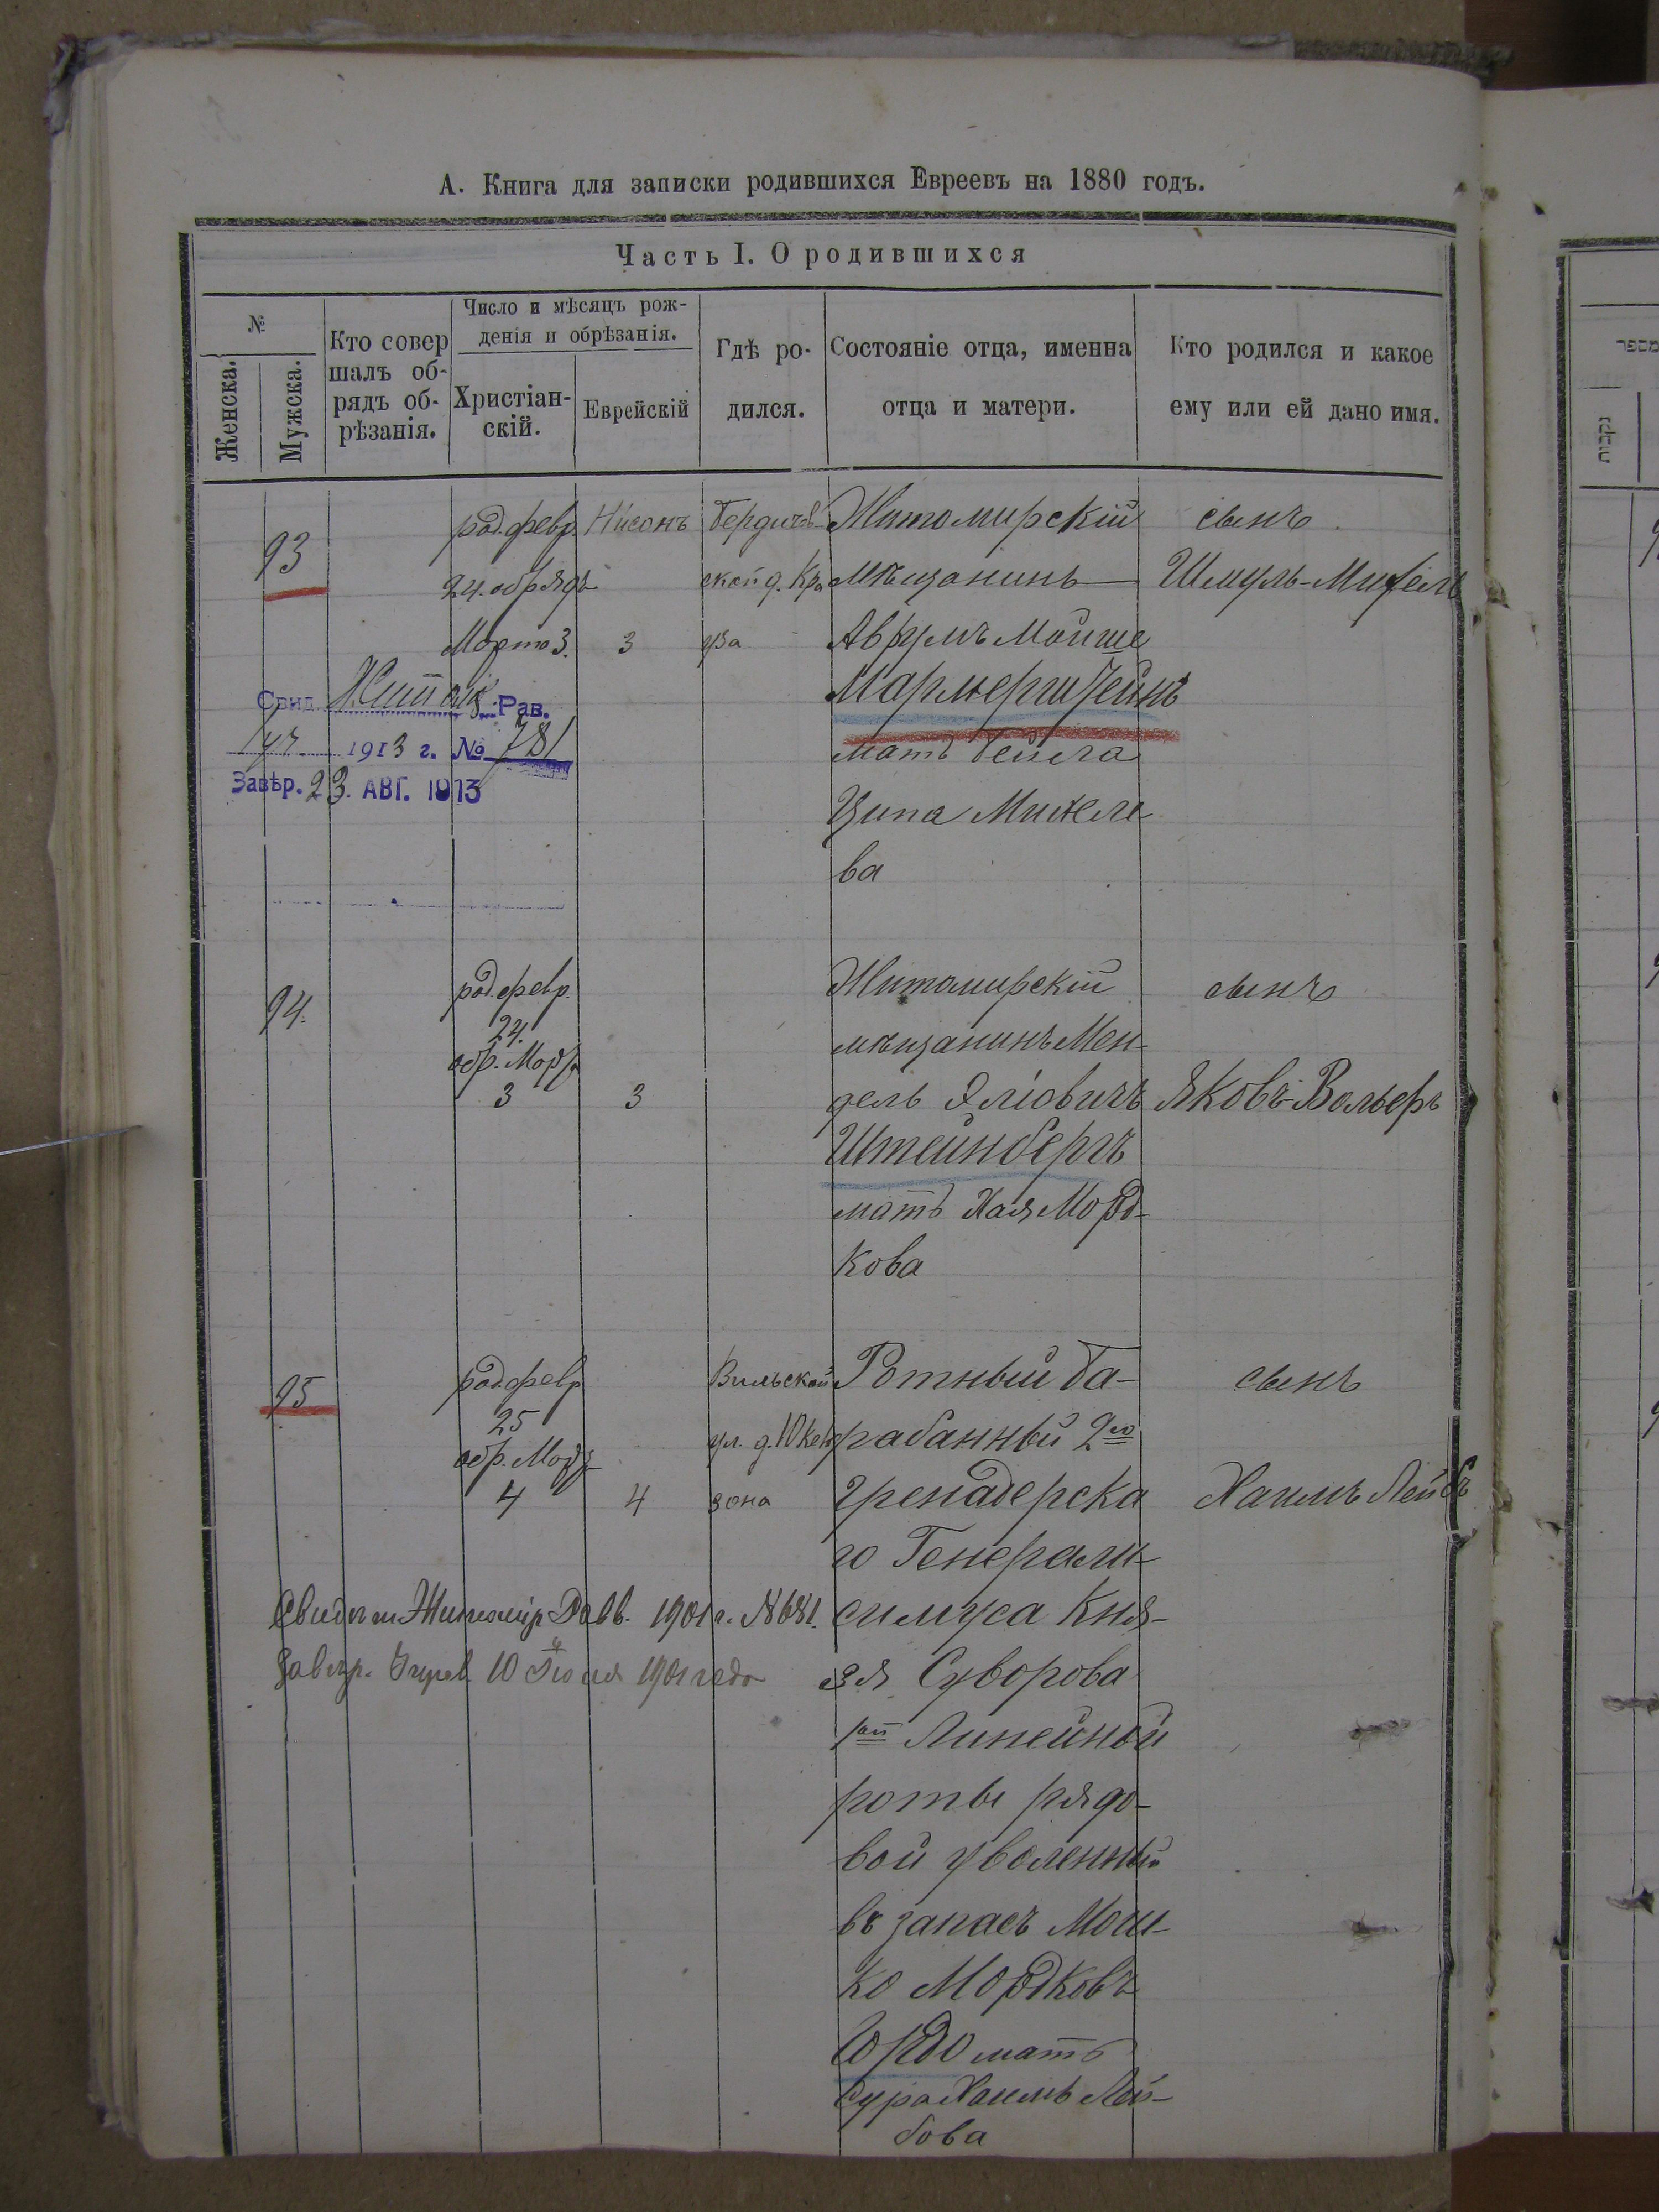 А. Книга для записки родившихся Евреевъ на 1880 годъ.
Часть I. О родившихся
№
Женска.
Мужска.
Кто совер
шалъ об-
рядъ об-
рѣзанія.
Число и мѣсяцъ рож-
денія и обрѣзанія.
Христіан-
скій.
Еврейскій
Гдѣ ро-
дился.
Состояніе отца, именна
отца и матери.
Кто родился и какое
ему или ей дано имя.
93
род. февр.
24. обрядъ
Марта 3.
Нисонъ
3
Бердичев-
ской д. Кра
уза
Житомирскій
мѣщанинъ
Аврумъ Мойше
Мармерштейнъ
мать Бейла
Ципа Михеле-
ва
сынъ
Шмуль-Михель
Свид. Рав.
1913 г. № 781
Завѣр. 23. АВГ. 1913
94.
род. февр.
24.
обр. Мар
3
3
Житомирскій
мѣщанинъ Мен-
дель Эліовичъ
Штейнбергъ
мать Хая Морд-
кова
сынъ
Яковъ-Вольфъ
95
род. февр
25
обр. Мар
4
4
Вильской
ул. д.
зона
Ротный ба-
рабанный 2го
гренадерска
го Генерали-
симуса Кня-
зя Суворова
1ой Линейной
роты рядо-
вой уволенный
въ запасъ Мош-
ко Мордковъ
мать
Сура Хаимъ Лей-
бова
сынъ
Хаимъ Лейбъ
1901 г. № 681.
10 Іюля 1901 года
מספר
נקבות